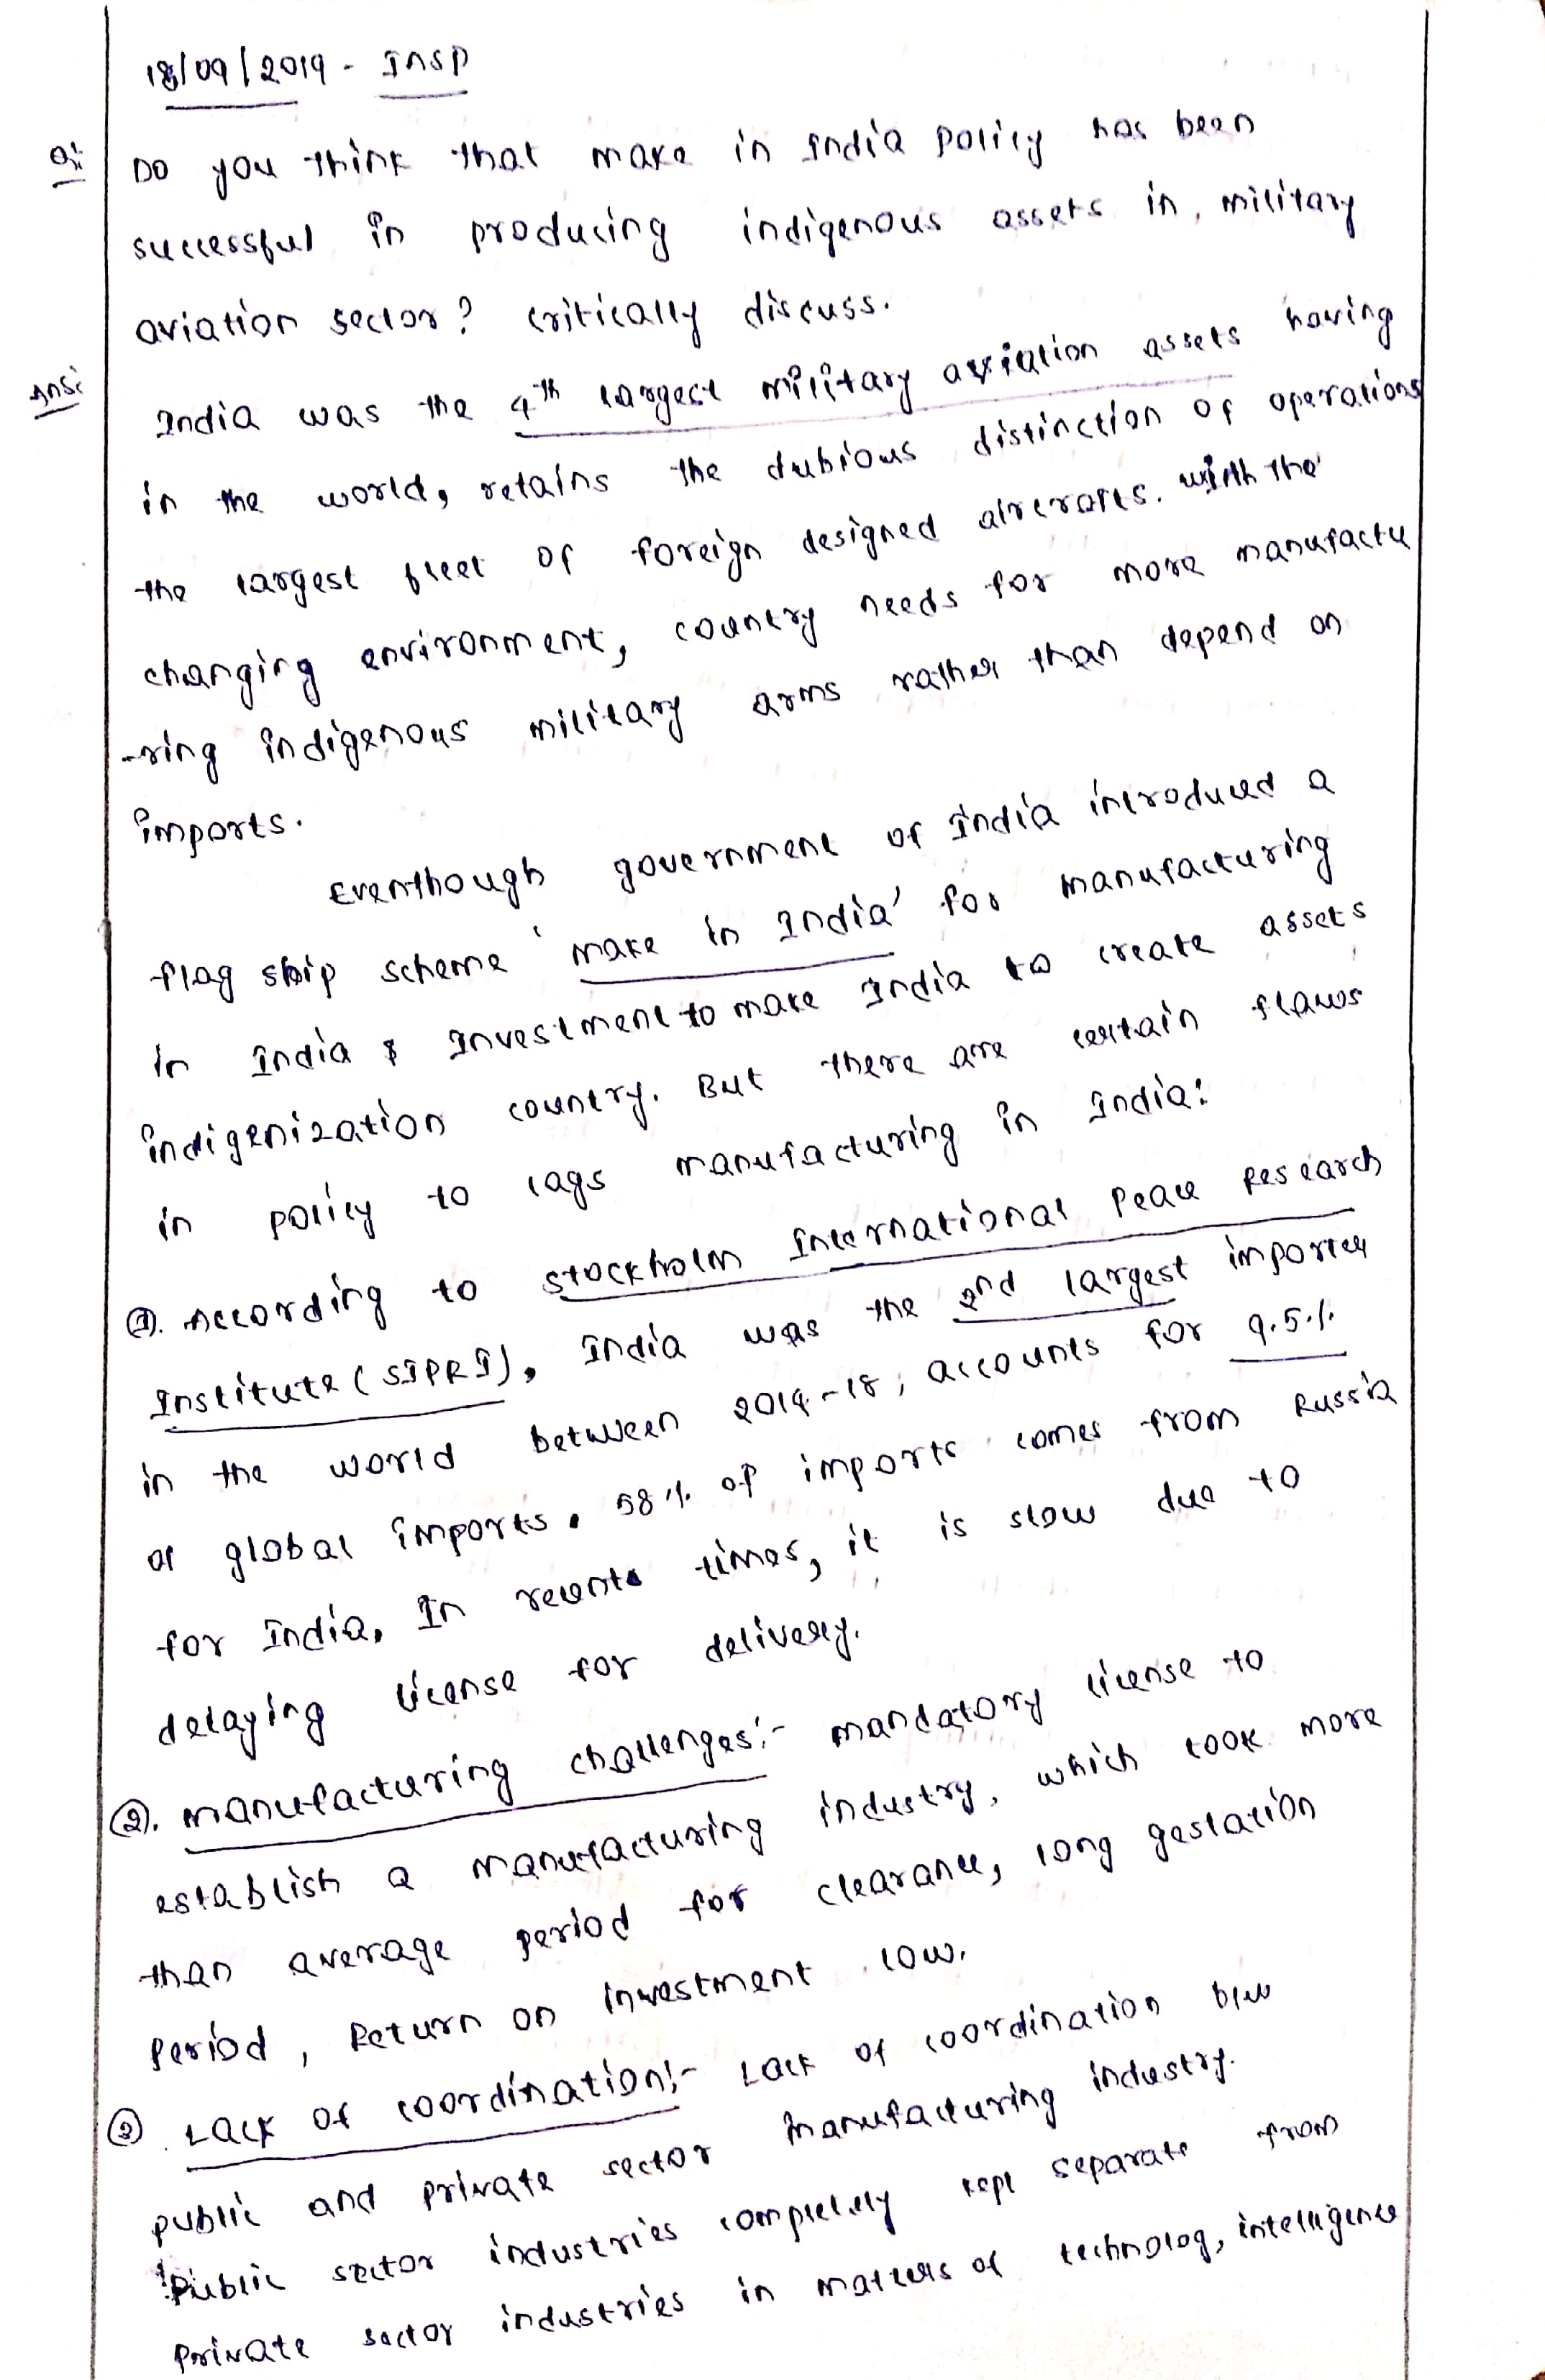 18/09/2019 - INSP
Q: Do you think that make in India policy has been
successful in producing indigenous assets in, military
aviation sector? critically discuss.
Ans: India was the 4th largest military aviation assets having
in the world, retains the dubious distinction of operations
the largest fleet of foreign designed aircrafts. with the
changing environment, country needs for more manufactu
-ring indigenous military arms rather than depend on
imports.
Eventhough government of India introduced a
flag ship scheme 'make in India' for manufacturing
in India & Investment to make India to create assets
indigenization country. But there are certain flaws
in policy to lags manufacturing in India:
①. According to Stockholm International Peace Research
Institute (SIPRI), India was the 2nd largest importer
in the world between 2014-18, accounts for 9.5%
of global imports. 58% of imports comes from Russia
for India, In recents times, it is slow due to
delaying license for delivery.
②. manufacturing challenges:- mandatory license to
establish a manufacturing industry, which took more
than average period for clearance, long gestation
period, Return on investment low.
③ Lack of coordination:- Lack of coordination b/w
public and private sector manufacturing industry.
Public sector industries completely kept separate from
private sector industries in matters of technolog, intelligence